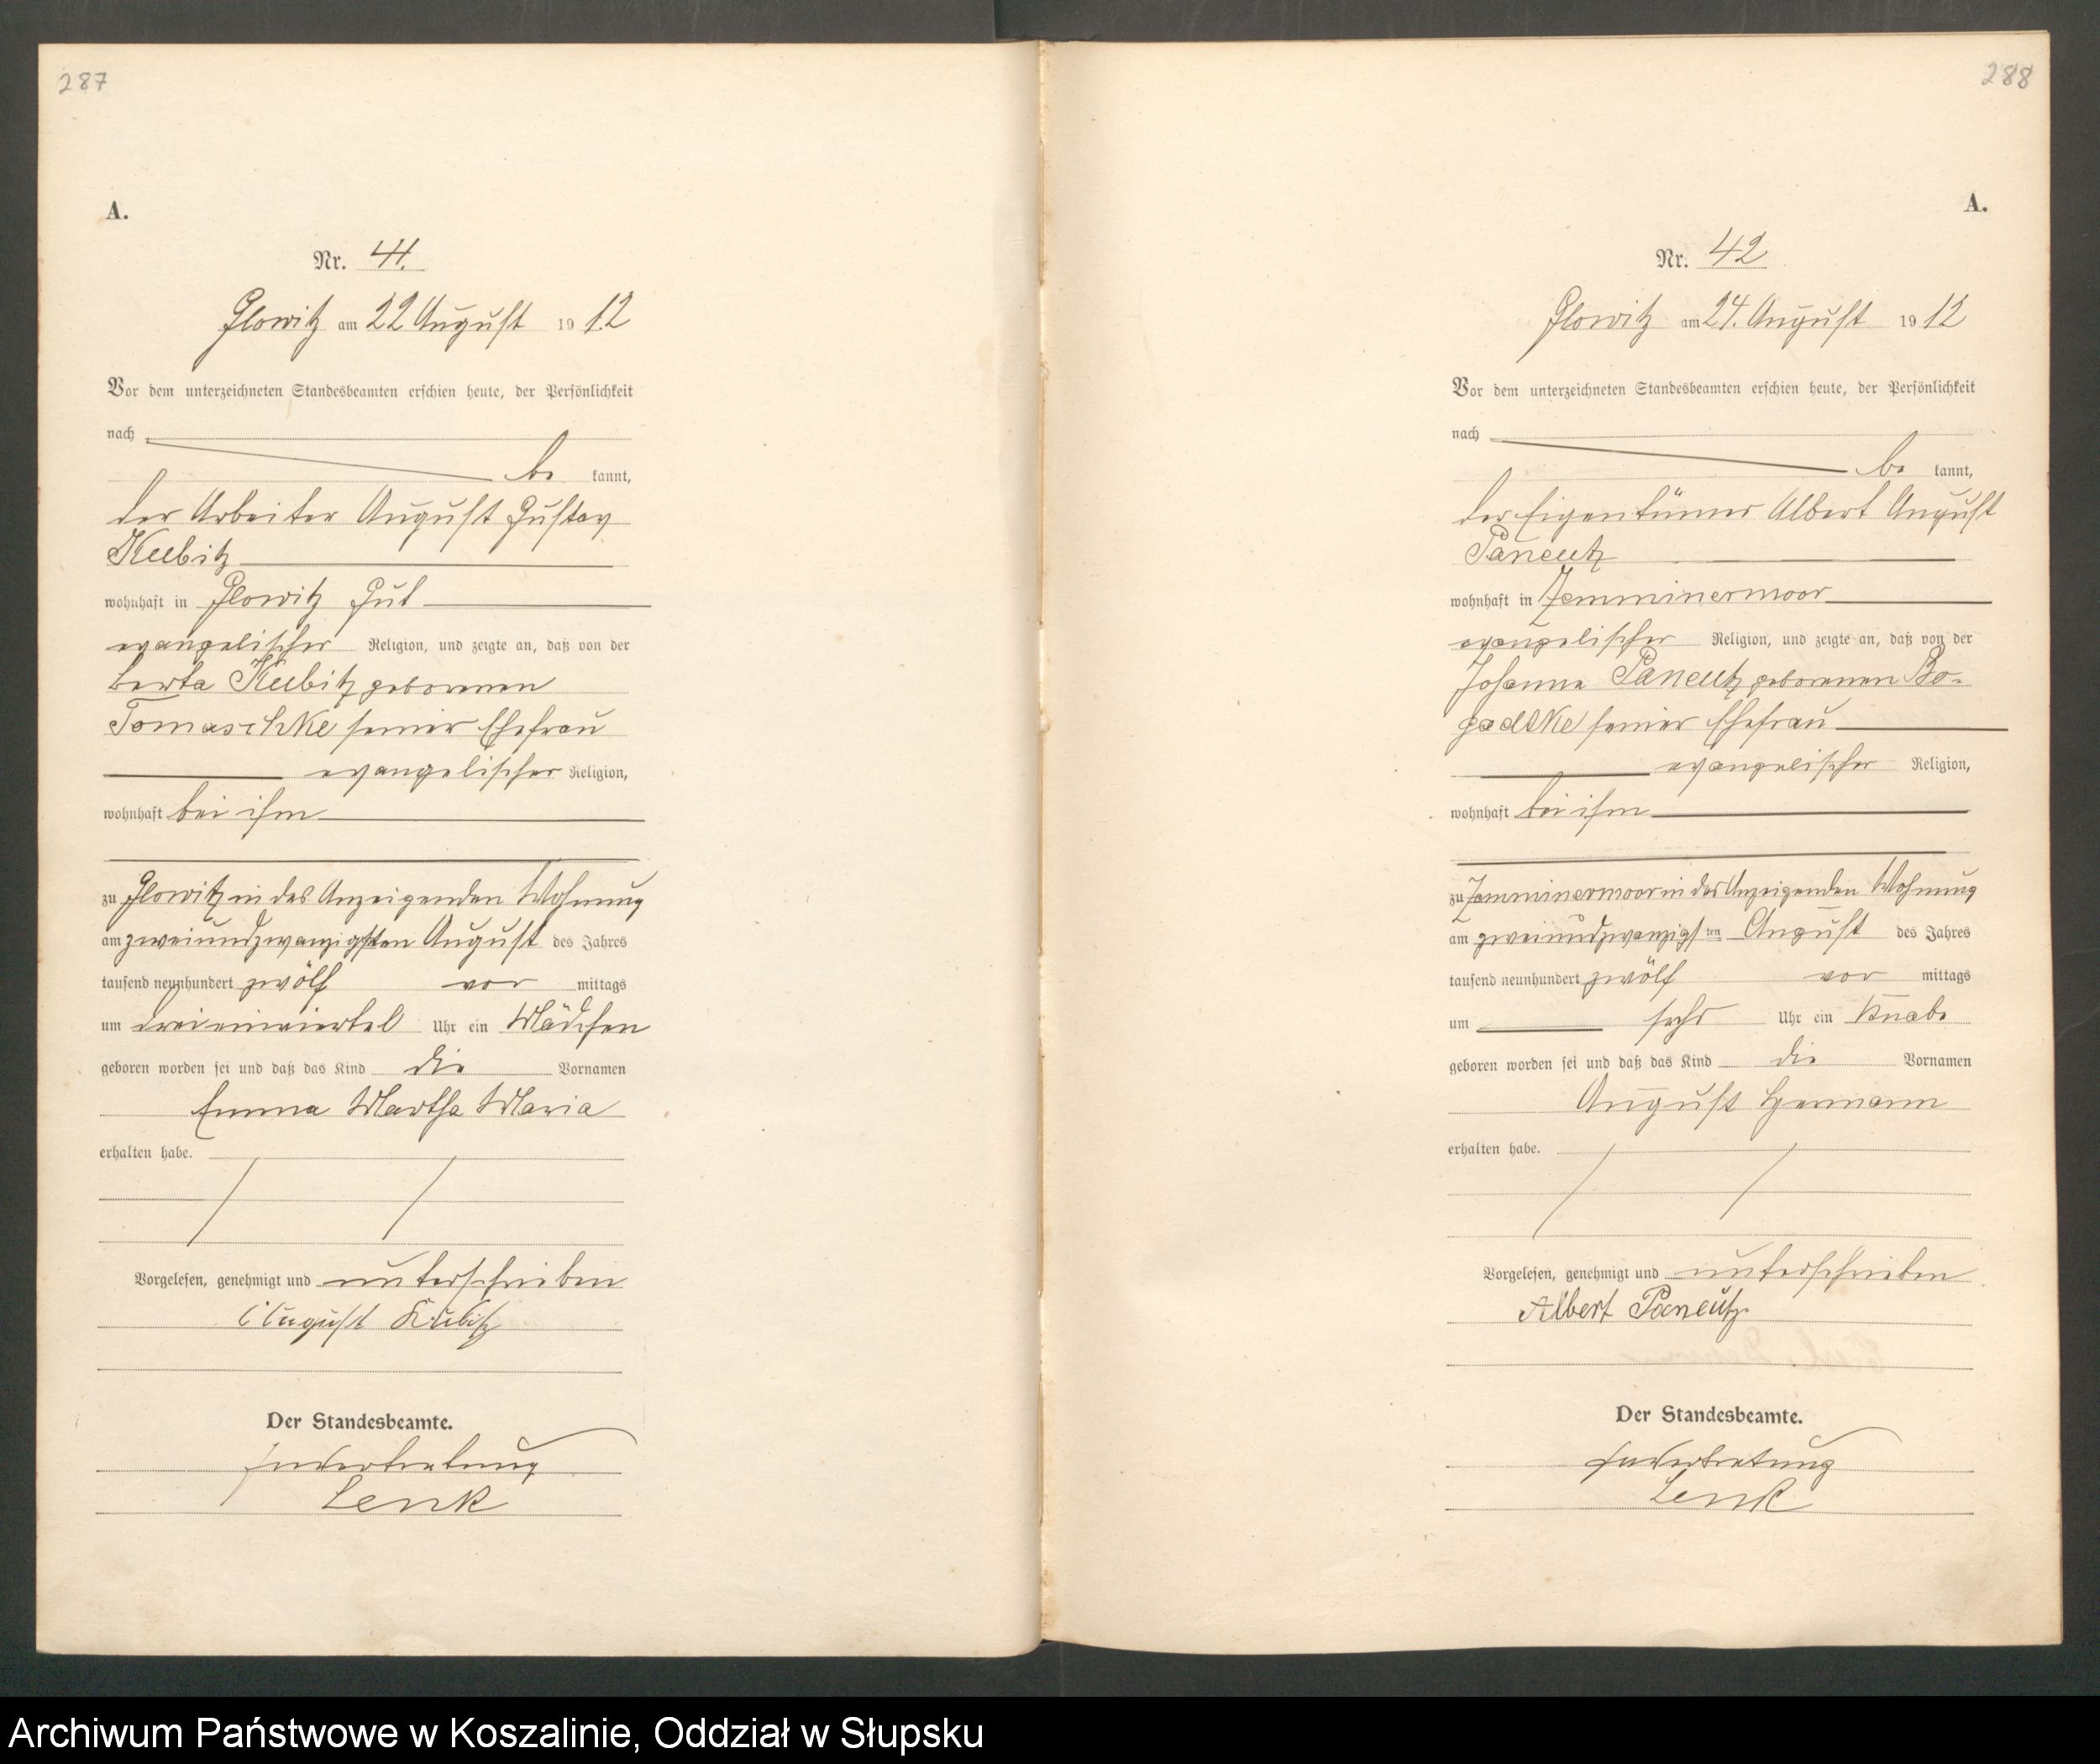 287
A.
Nr. 41.
Glowitz am 22 August 1912
Vor dem unterzeichneten Standesbeamten erschien heute, der Persönlichkeit
nach
be kannt,
der Arbeiter August Gustav
Kubitz
wohnhaft in Glowitz Gut
evangelischer Religion, und zeigte an, daß von der
Berta Kubitz geborenen
Tomaschke seiner Ehefrau
evangelischer Religion,
wohnhaft bei ihm
zu Glowitz in des Anzeigenden Wohnung
am zweiundzwanzigsten August des Jahres
tausend neunhundert zwölf vor mittags
um drei einviertel Uhr ein Mädchen
geboren worden sei und daß das Kind die Vornamen
Emma Martha Maria
erhalten habe.
Vorgelesen, genehmigt und unterschrieben
August Kubitz
Der Standesbeamte.
In Vertretung
Lenk
288
A.
Nr. 42
Glowitz am 24. August 1912
Vor dem unterzeichneten Standesbeamten erschien heute, der Persönlichkeit
nach
be kannt,
der Eigentümer Albert August
Paneutz
wohnhaft in Zemminermoor
evangelischer Religion, und zeigte an, daß von der
Johanne Paneutz geborenen Bo-
gadtke seiner Ehefrau
evangelischer Religion,
wohnhaft bei ihm
zu Zemminermoor in des Anzeigenden Wohnung
am zweiundzwanzigsten August des Jahres
tausend neunhundert zwölf vor mittags
um sechs Uhr ein Knabe
geboren worden sei und daß das Kind die Vornamen
August Hermann
erhalten habe.
Vorgelesen, genehmigt und unterschrieben
Albert Paneutz
Der Standesbeamte.
In Vertretung
Lenk
Archiwum Państwowe w Koszalinie, Oddział w Słupsku